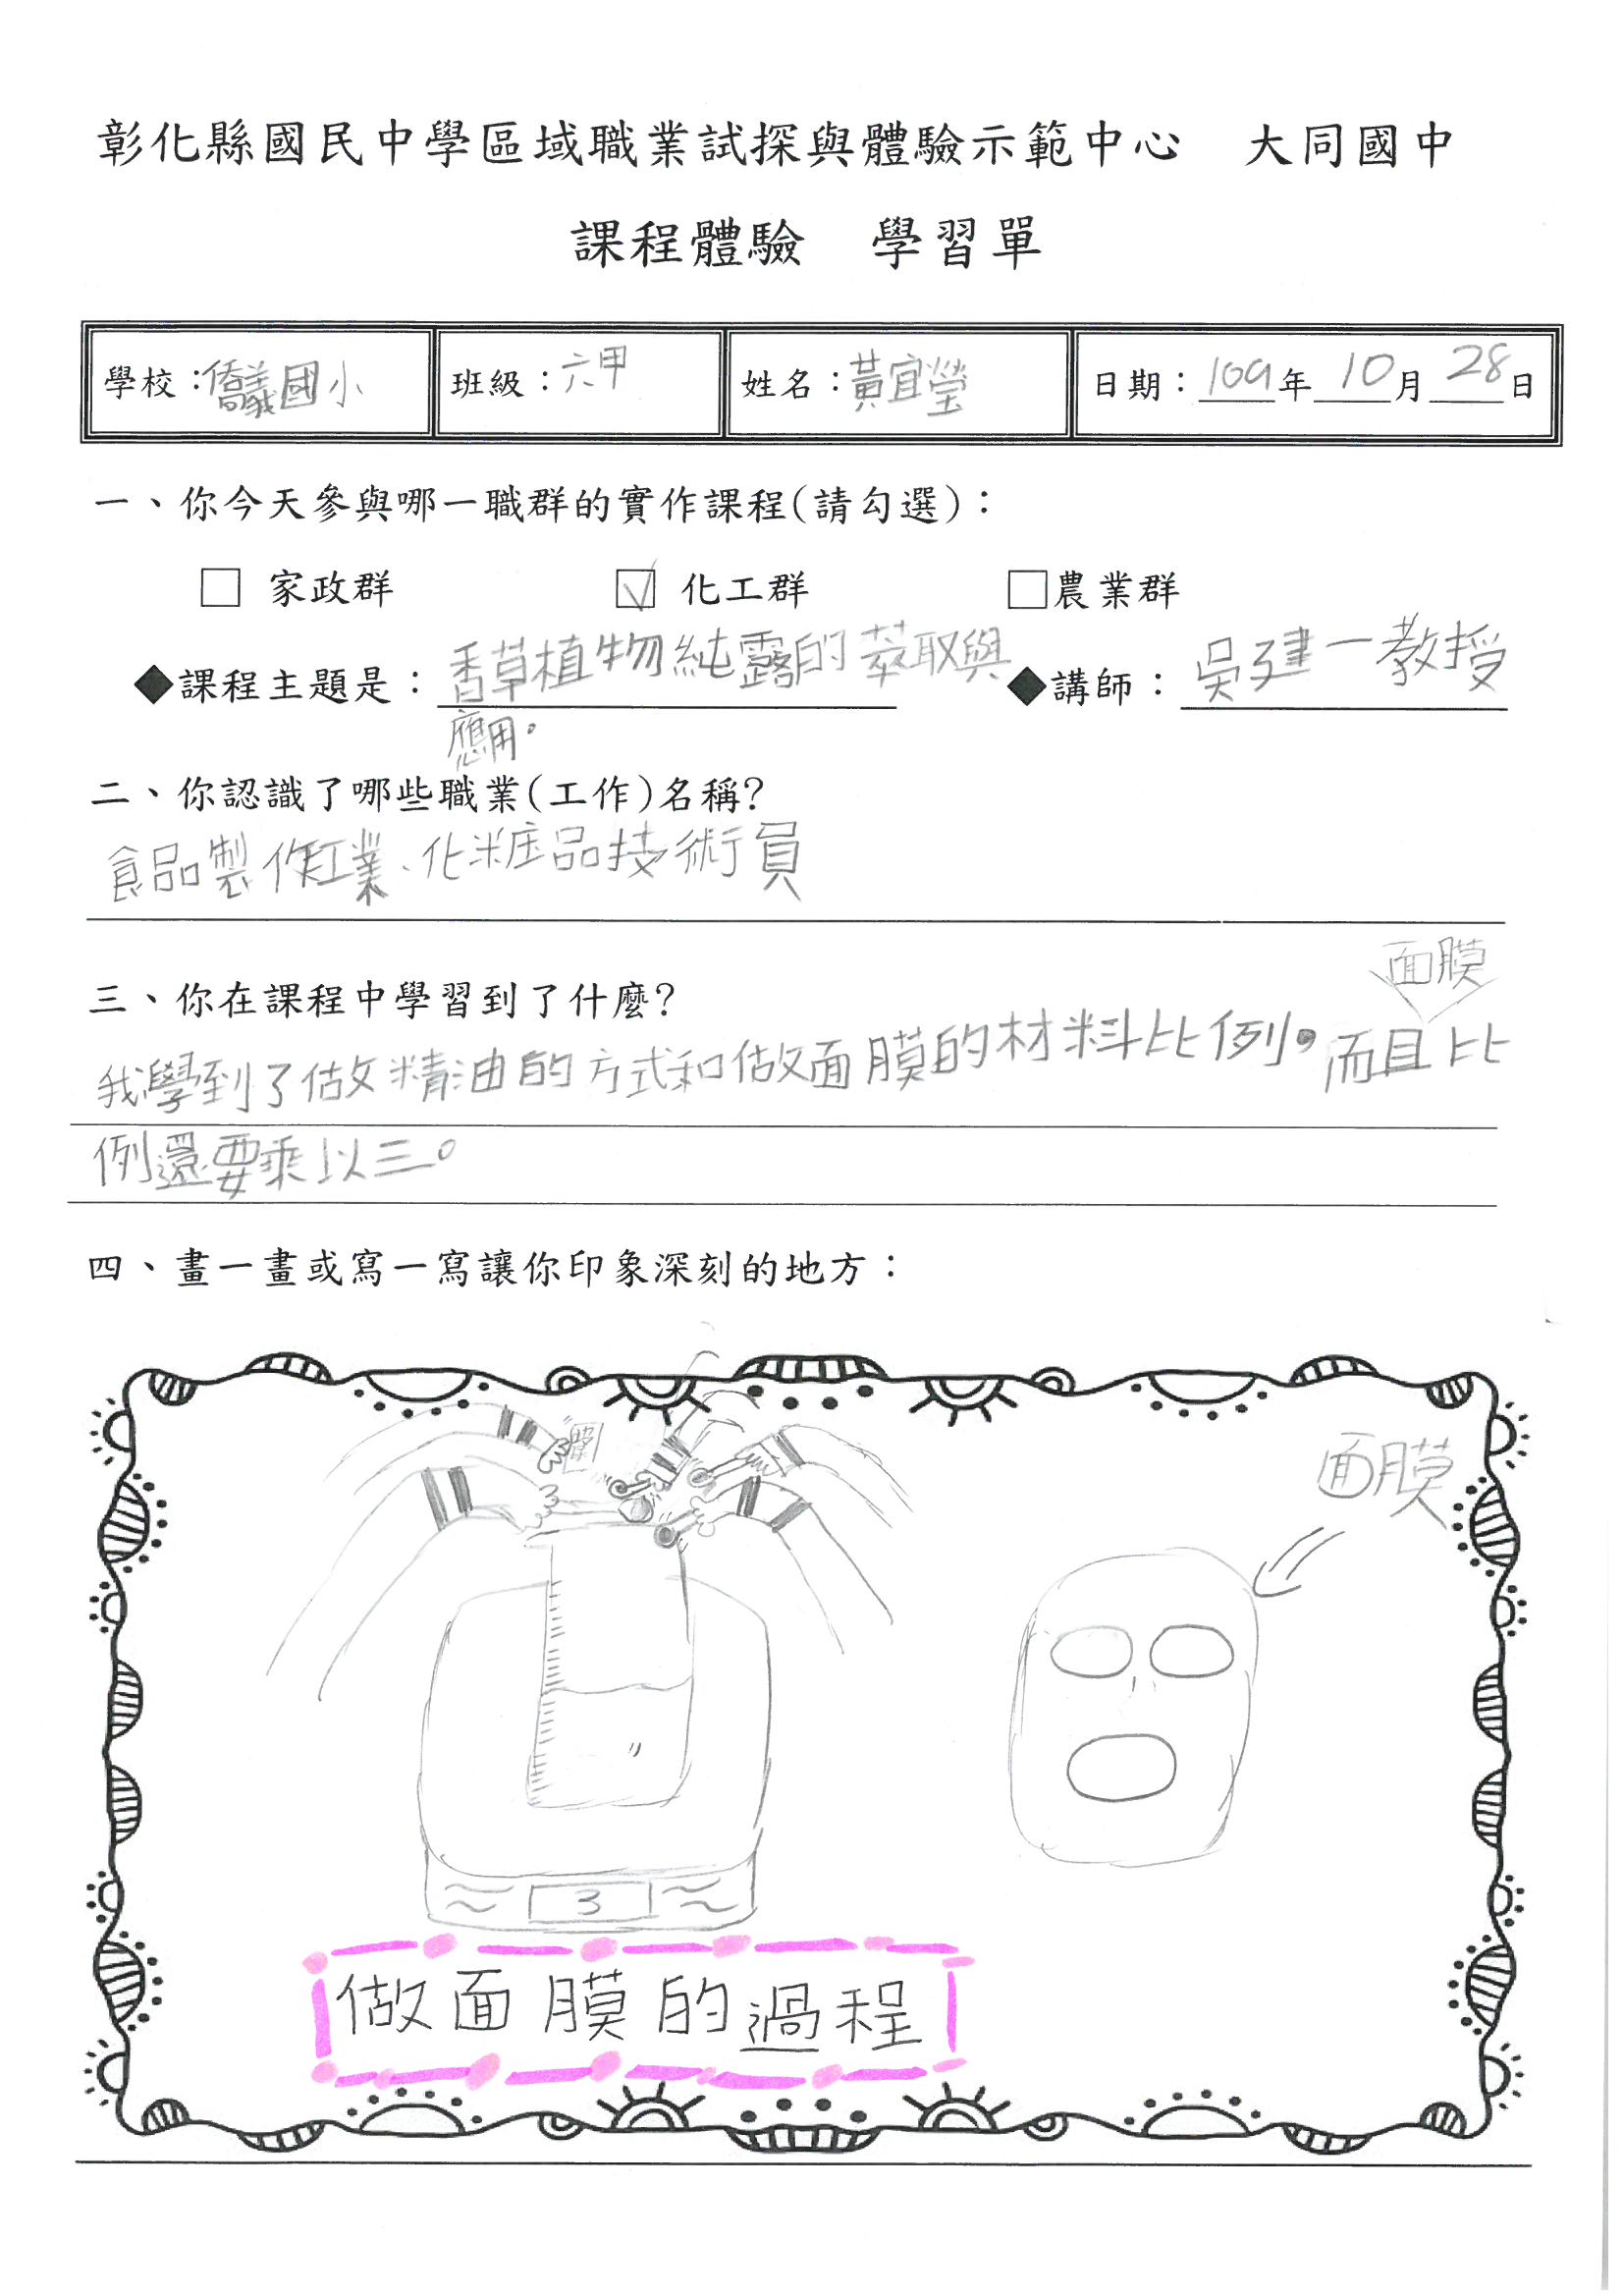 彰化縣國民中學區域職業試探與體驗示範中心 大同國中
課程體驗 學習單
學校:僑義國小 班級:六甲 姓名:黃宜瑩 日期:109年10月28日
一、你今天參與哪一職群的實作課程(請勾選):
□ 家政群 ☑ 化工群 □農業群
◆課程主題是:香草植物純露的萃取與 ◆講師:吳建一教授
應用。
二、你認識了哪些職業(工作)名稱?
食品製作工業、化粧品技術員
三、你在課程中學習到了什麼?
面膜
我學到了做精油的方式和做面膜的材料比例,而且比
例還要乘以三。
四、畫一畫或寫一寫讓你印象深刻的地方:
面膜
3
做面膜的過程